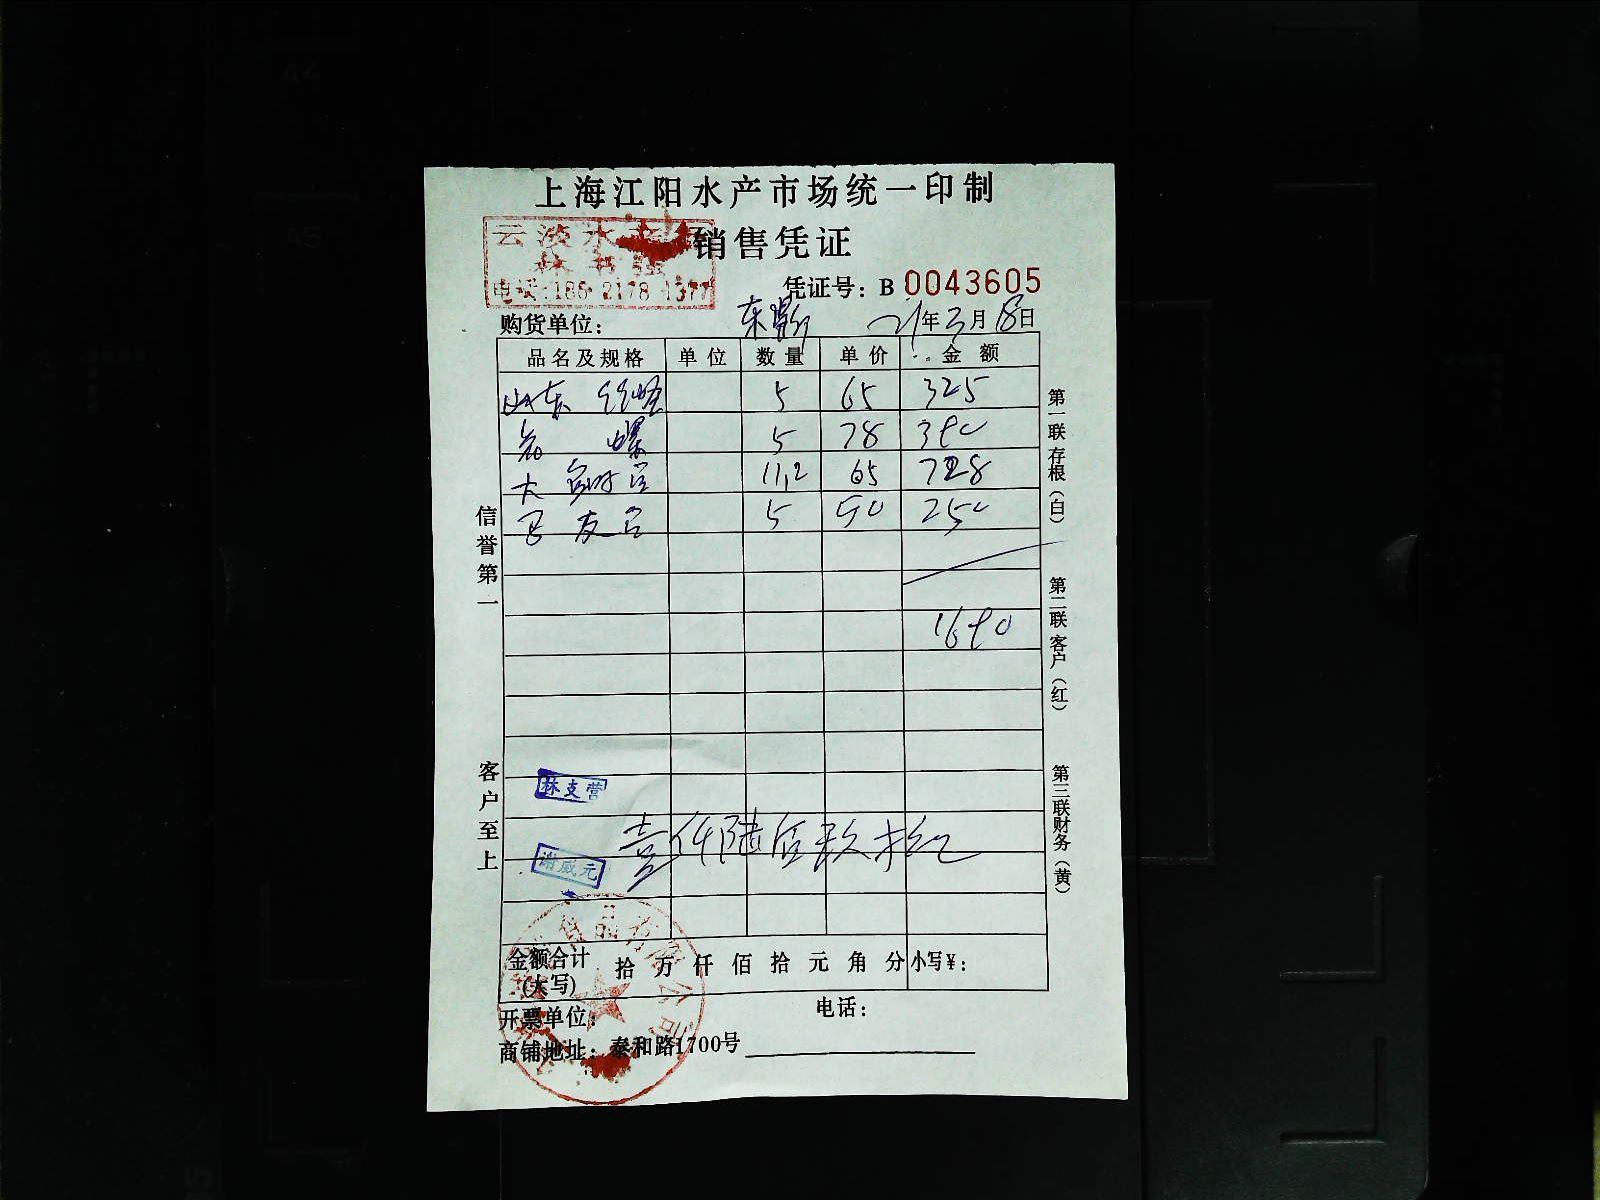 上海江阳水产市场统一印制
销售凭证
云淡水
电话:186 2178 1377
凭证号: B 0043605
购货单位: 东 21年3月18日
品名及规格 单位 数量 单价 金额
山东 5 65 325
螺 5 78 390
大 11.2 65 728
5 50 250
1690
信誉第一
客户至上
第一联存根(白)
第二联客户(红)
第三联财务(黄)
林支营
壹仟陆佰玖拾
谢威元
金额合计(大写) 拾 万 仟 佰 拾 元 角 分 小写¥:
开票单位: 电话:
商铺地址: 泰和路1700号